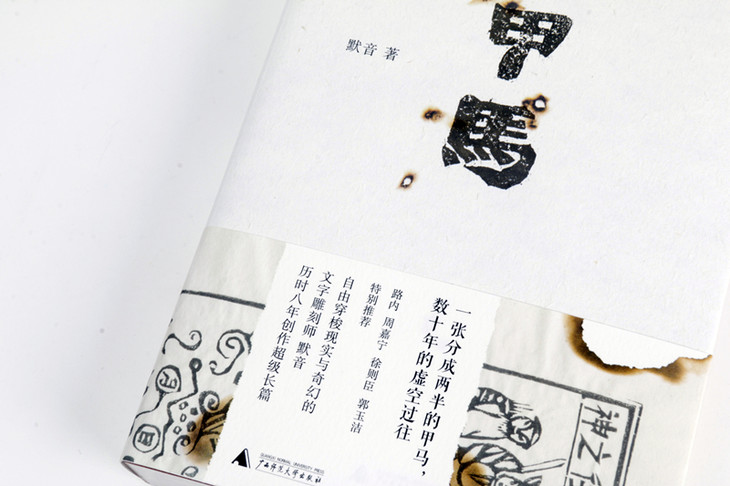 甲馬
默音 著
一张分成两半的甲马，
数十年的虚空过往
路内 周嘉宁 徐则臣 郭玉洁
特别推荐
自由穿梭现实与奇幻的
文字雕刻师 默音
历时八年创作超级长篇
GUANGXI NORMAL UNIVERSITY PRESS
广西师范大学出版社
神之